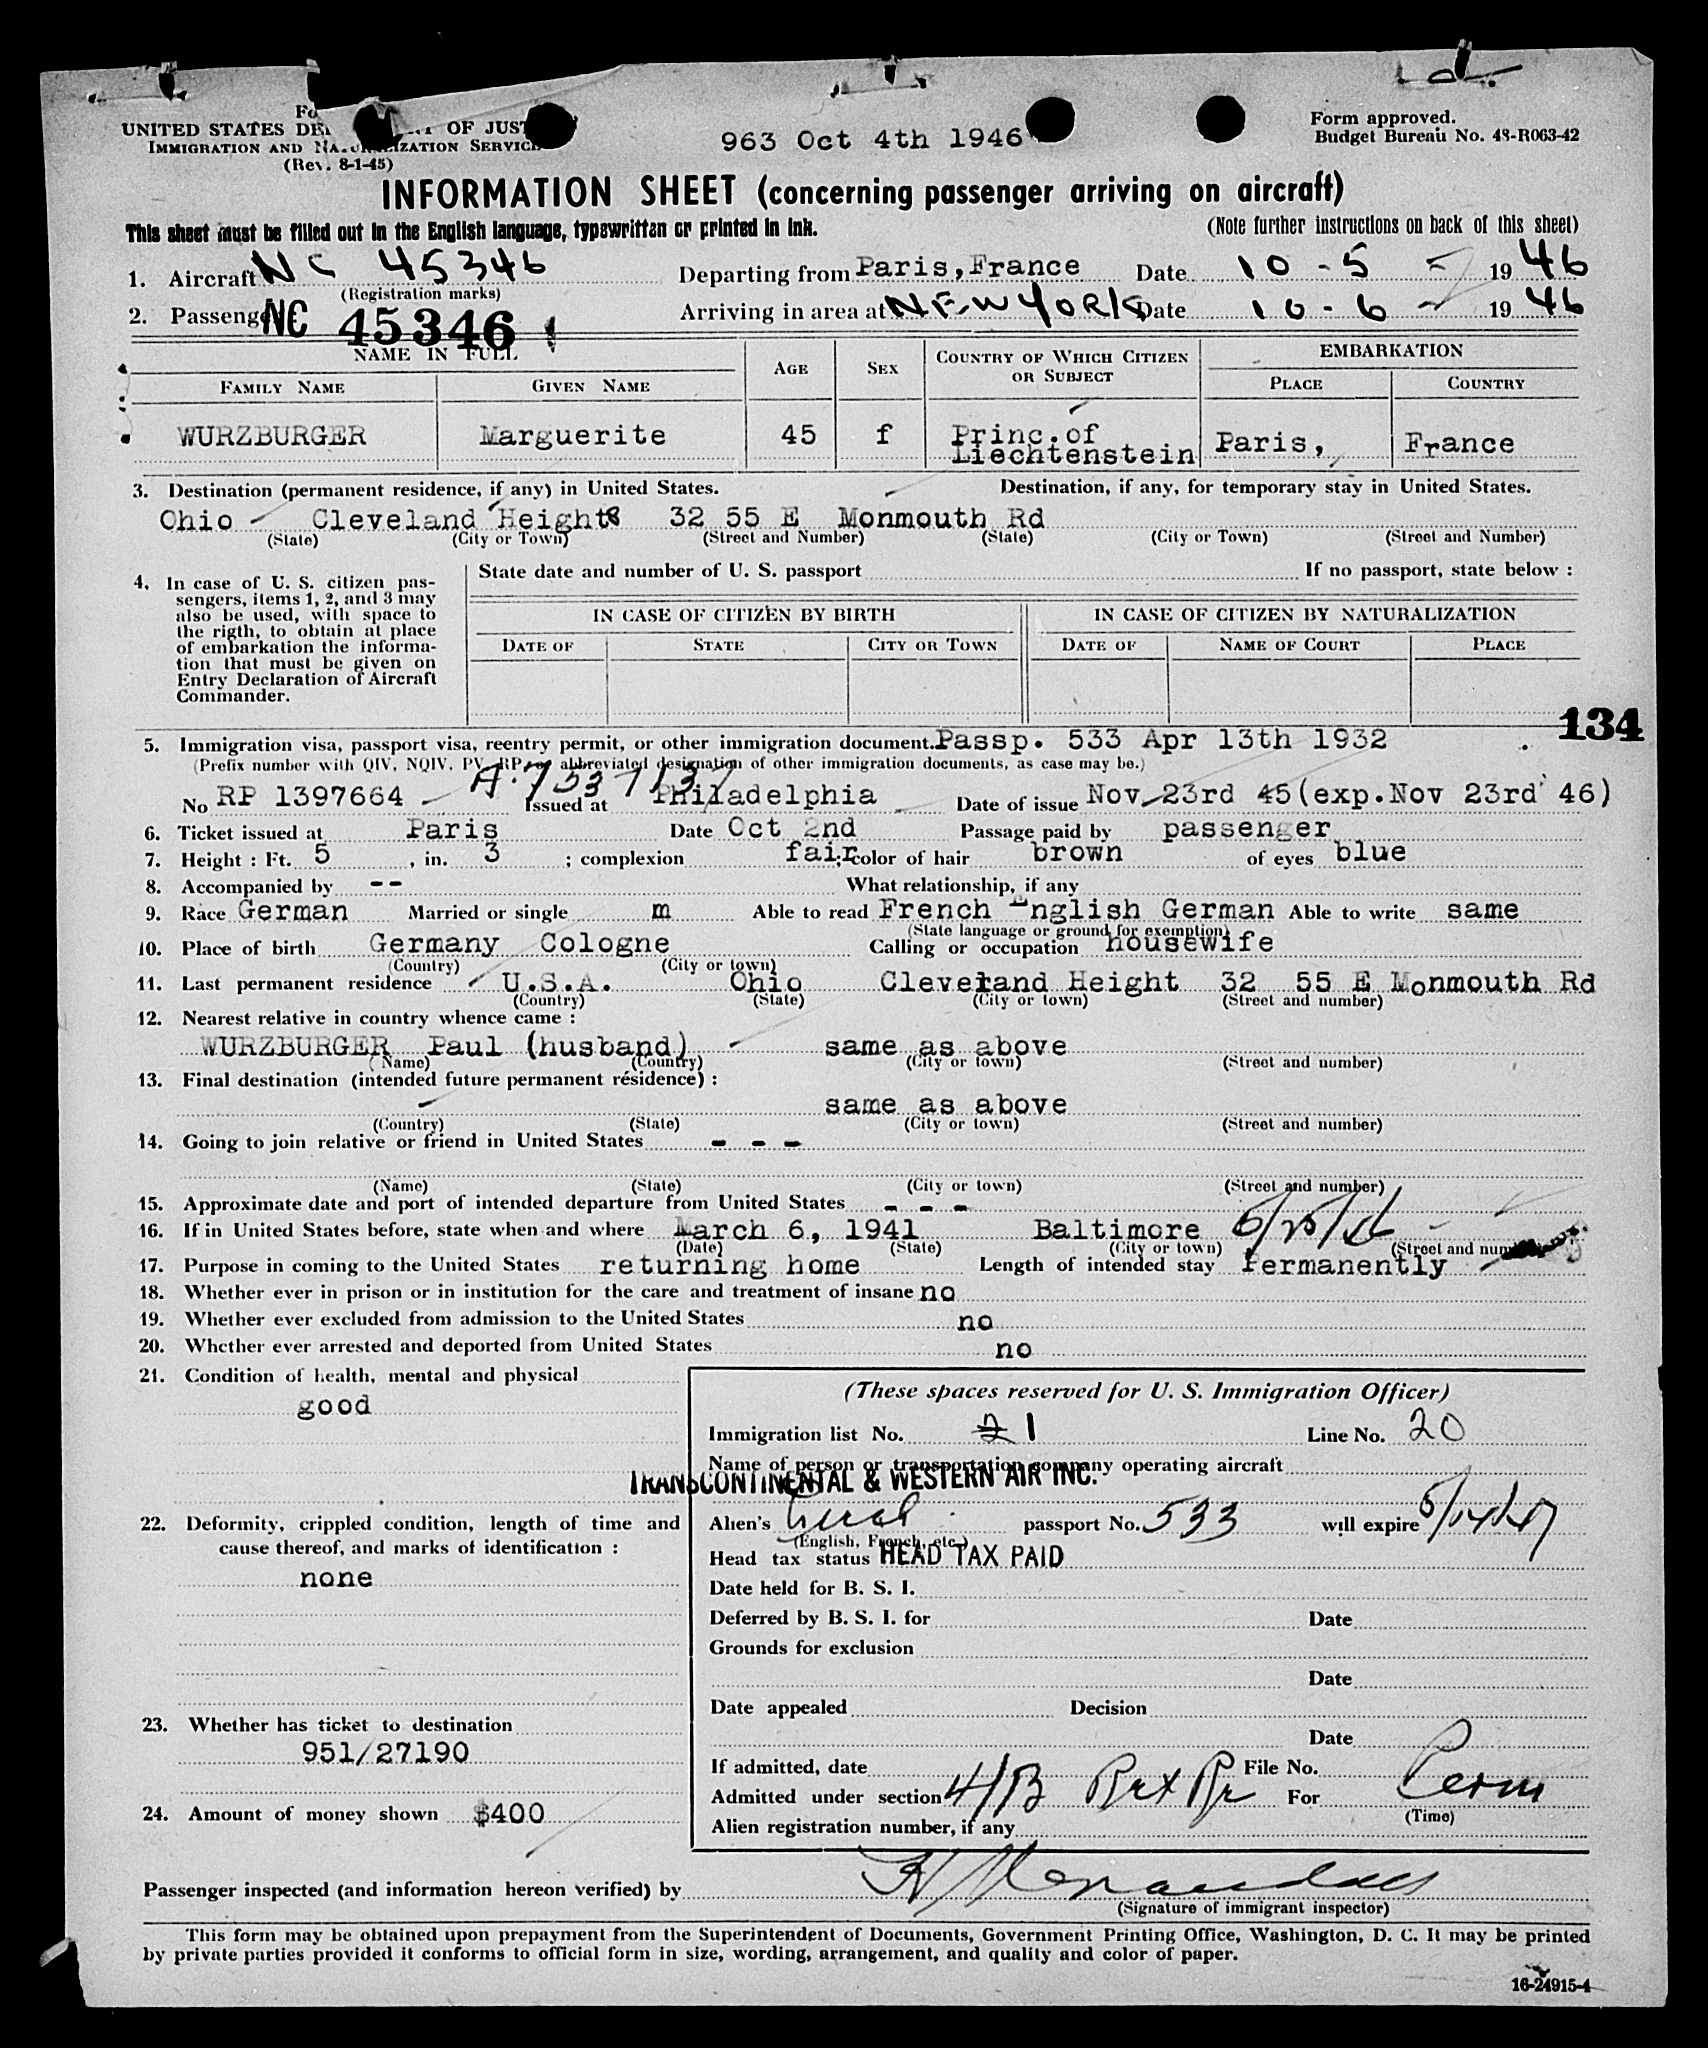 UNITED STATES DE OF JUST
IMMIGRATION AND NATURALIZATION SERVICE
(Rev. 8-1-45)
963 Oct 4th 1946
Form approved.
Budget Bureau No. 43-R063-42
INFORMATION SHEET (concerning passenger arriving on aircraft)
This sheet must be filled out in the English language, typewritten or printed in ink.
(Note further instructions on back of this sheet)
1. Aircraft NC 45346 Departing from Paris, France Date 10-5- 1946
(Registration marks)
2. Passenge NC 45346 Arriving in area at NEW YORK Date 10-6- 1946
NAME IN FULL AGE SEX COUNTRY OF WHICH CITIZEN OR SUBJECT EMBARKATION
FAMILY NAME GIVEN NAME PLACE COUNTRY
WURZBURGER Marguerite 45 f Princ.of Liechtenstein Paris, France
3. Destination (permanent residence, if any) in United States. Destination, if any, for temporary stay in United States.
Ohio Cleveland Heights 32 55 E Monmouth Rd
(State) (City or Town) (Street and Number) (State) (City or Town) (Street and Number)
4. In case of U. S. citizen pas-
sengers, items 1, 2, and 3 may
also be used, with space to
the rigth, to obtain at place
of embarkation the informa-
tion that must be given on
Entry Declaration of Aircraft
Commander.
State date and number of U. S. passport If no passport, state below :
IN CASE OF CITIZEN BY BIRTH IN CASE OF CITIZEN BY NATURALIZATION
DATE OF STATE CITY OR TOWN DATE OF NAME OF COURT PLACE
134
5. Immigration visa, passport visa, reentry permit, or other immigration document. Passp. 533 Apr 13th 1932
(Prefix number with QIV, NQIV, PV, RP, or abbreviated designation of other immigration documents, as case may be.)
A-7537137
No RP 1397664 Issued at Philadelphia Date of issue Nov 23rd 45(exp.Nov 23rd 46)
6. Ticket issued at Paris Date Oct 2nd Passage paid by passenger
7. Height : Ft. 5 , in. 3 ; complexion fair ; color of hair brown of eyes blue
8. Accompanied by -- What relationship, if any
9. Race German Married or single m Able to read French English German Able to write same
(State language or ground for exemption)
10. Place of birth Germany Cologne Calling or occupation housewife
(Country) (City or town)
11. Last permanent residence U.S.A. Ohio Cleveland Height 32 55 E Monmouth Rd
(Country) (State) (City or town) (Street and number)
12. Nearest relative in country whence came :
WURZBURGER Paul (husband) same as above
(Name) (Country) (City or town) (Street and number)
13. Final destination (intended future permanent résidence) :
same as above
(Country) (State) (City or town) (Street and number)
14. Going to join relative or friend in United States - - -
(Name) (State) (City or town) (Street and number)
15. Approximate date and port of intended departure from United States - - -
16. If in United States before, state when and where March 6, 1941 Baltimore 5/25/46
(Date) (State) (City or town) (Street and num
17. Purpose in coming to the United States returning home Length of intended stay Permanently
18. Whether ever in prison or in institution for the care and treatment of insane no
19. Whether ever excluded from admission to the United States no
20. Whether ever arrested and deported from United States no
21. Condition of health, mental and physical
good
(These spaces reserved for U. S. Immigration Officer)
Immigration list No. 2 1 Line No. 20
Name of person or transportation company operating aircraft
TRANSCONTINENTAL & WESTERN AIR INC.
22. Deformity, crippled condition, length of time and
cause thereof, and marks of identification :
none
Alien's passport No. 533 will expire
(English, French, etc.)
Head tax status HEAD TAX PAID
Date held for B. S. I.
Deferred by B. S. I. for Date
Grounds for exclusion
Date
Date appealed Decision
Date
23. Whether has ticket to destination
951/27190
If admitted, date File No.
Admitted under section 4/B For Perm
(Time)
24. Amount of money shown $400
Alien registration number, if any
Passenger inspected (and information hereon verified) by
(Signature of immigrant inspector)
This form may be obtained upon prepayment from the Superintendent of Documents, Government Printing Office, Washington, D. C. It may be printed
by private parties provided it conforms to official form in size, wording, arrangement, and quality and color of paper.
16-24915-4